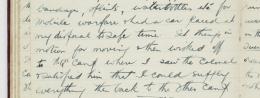 bandages, splints, water bottles etc for
mobile warfare & had a car placed at
my disposal to save time. Set things in
motion for moving then walked off
to camp where I saw the Colonel
& satisfied him that I could supply
everything the back to the other camp